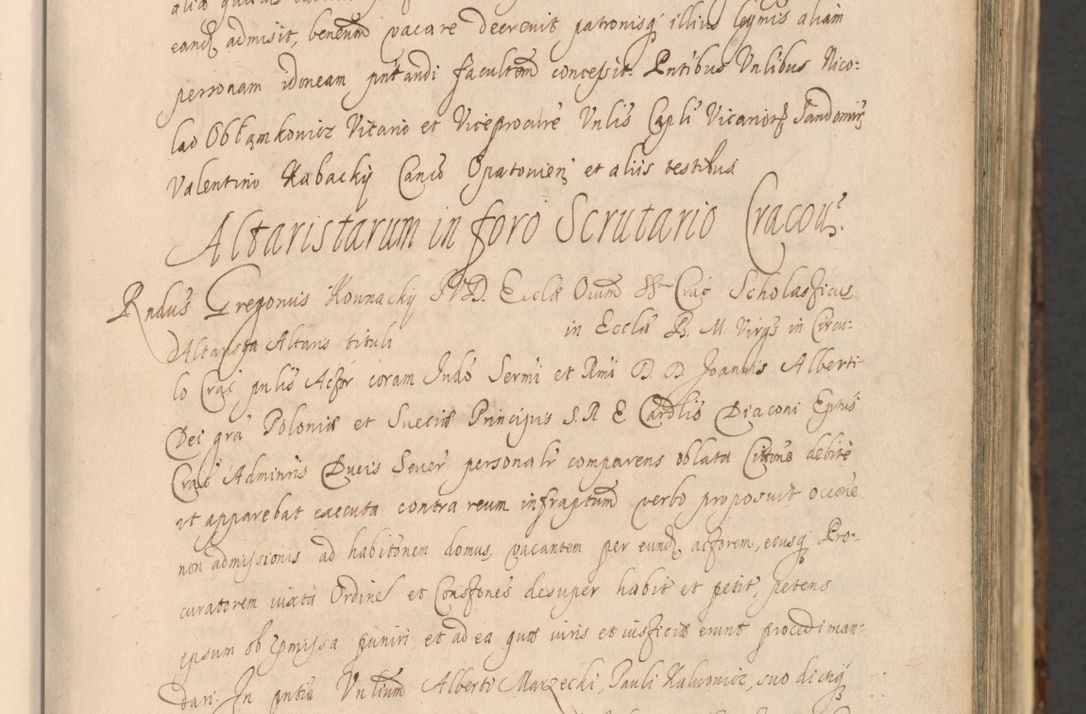 eand admisit, beneum vacare decrevit patronisq illius legnis aliam
personam idoneam pntandi facultem concessit. Pntibus Vnlibus Nico-
lao Obłąmkowicz Vicario et Viceprocure Vnlis Capli Vicarior Sandomir
Valentino Rabacky Canco Opatovien et aliis testibus
Altaristarum in foro Scrutario Cracou.
Rndus Gregorius Kownacky IVD. Ecclæ Oium SS Crac Scholasticus
Altarista Altaris tituli in Eccla B. M. Virgs in Circu-
lo Crac pnlis Actor coram Indo Sermi et Rmi D. D. Joannis Alberti
Dei gra Poloniæ et Sueciæ Principis S. R. E. Cardlis Diaconi Eptus
Crac Adminris Ducis Sever personalr comparens oblata Citone debite
ut apparebat executa contra reum infraptum verbo proposuit occone
non admissionis ad habitonem domus, vacantem per eund actorem, eiusq Pro-
curatorem iuxta Ordine et Constones desuper habit et petit, petens
ipsum ob præmissa puniri et ad ea quæ iuris et iusticiæ erunt procedi man-
dari. In pntia Vnlium Alberti Marzecki, Pauli Kalwowicz, suo dictq